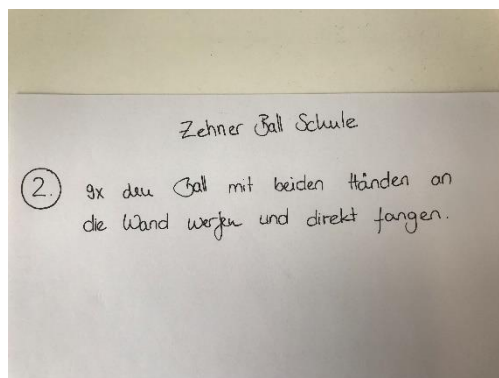 Zehner Ball Schule
2. 9x den Ball mit beiden Händen an
die Wand werfen und direkt fangen.